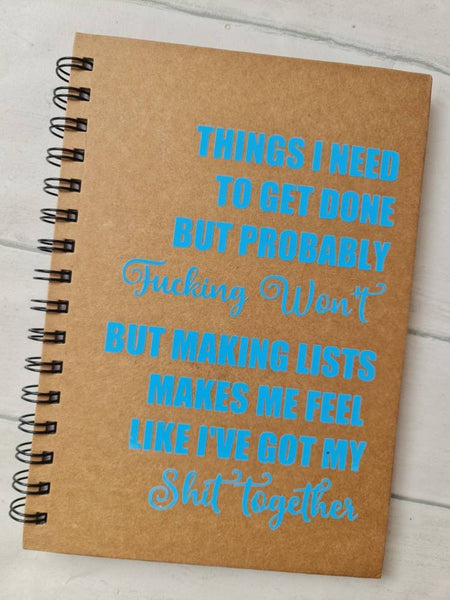 THINGS I NEED
TO GET DONE
BUT PROBABLY
Fucking Won't
BUT MAKING LISTS
MAKES ME FEEL
LIKE I'VE GOT MY
Shit together